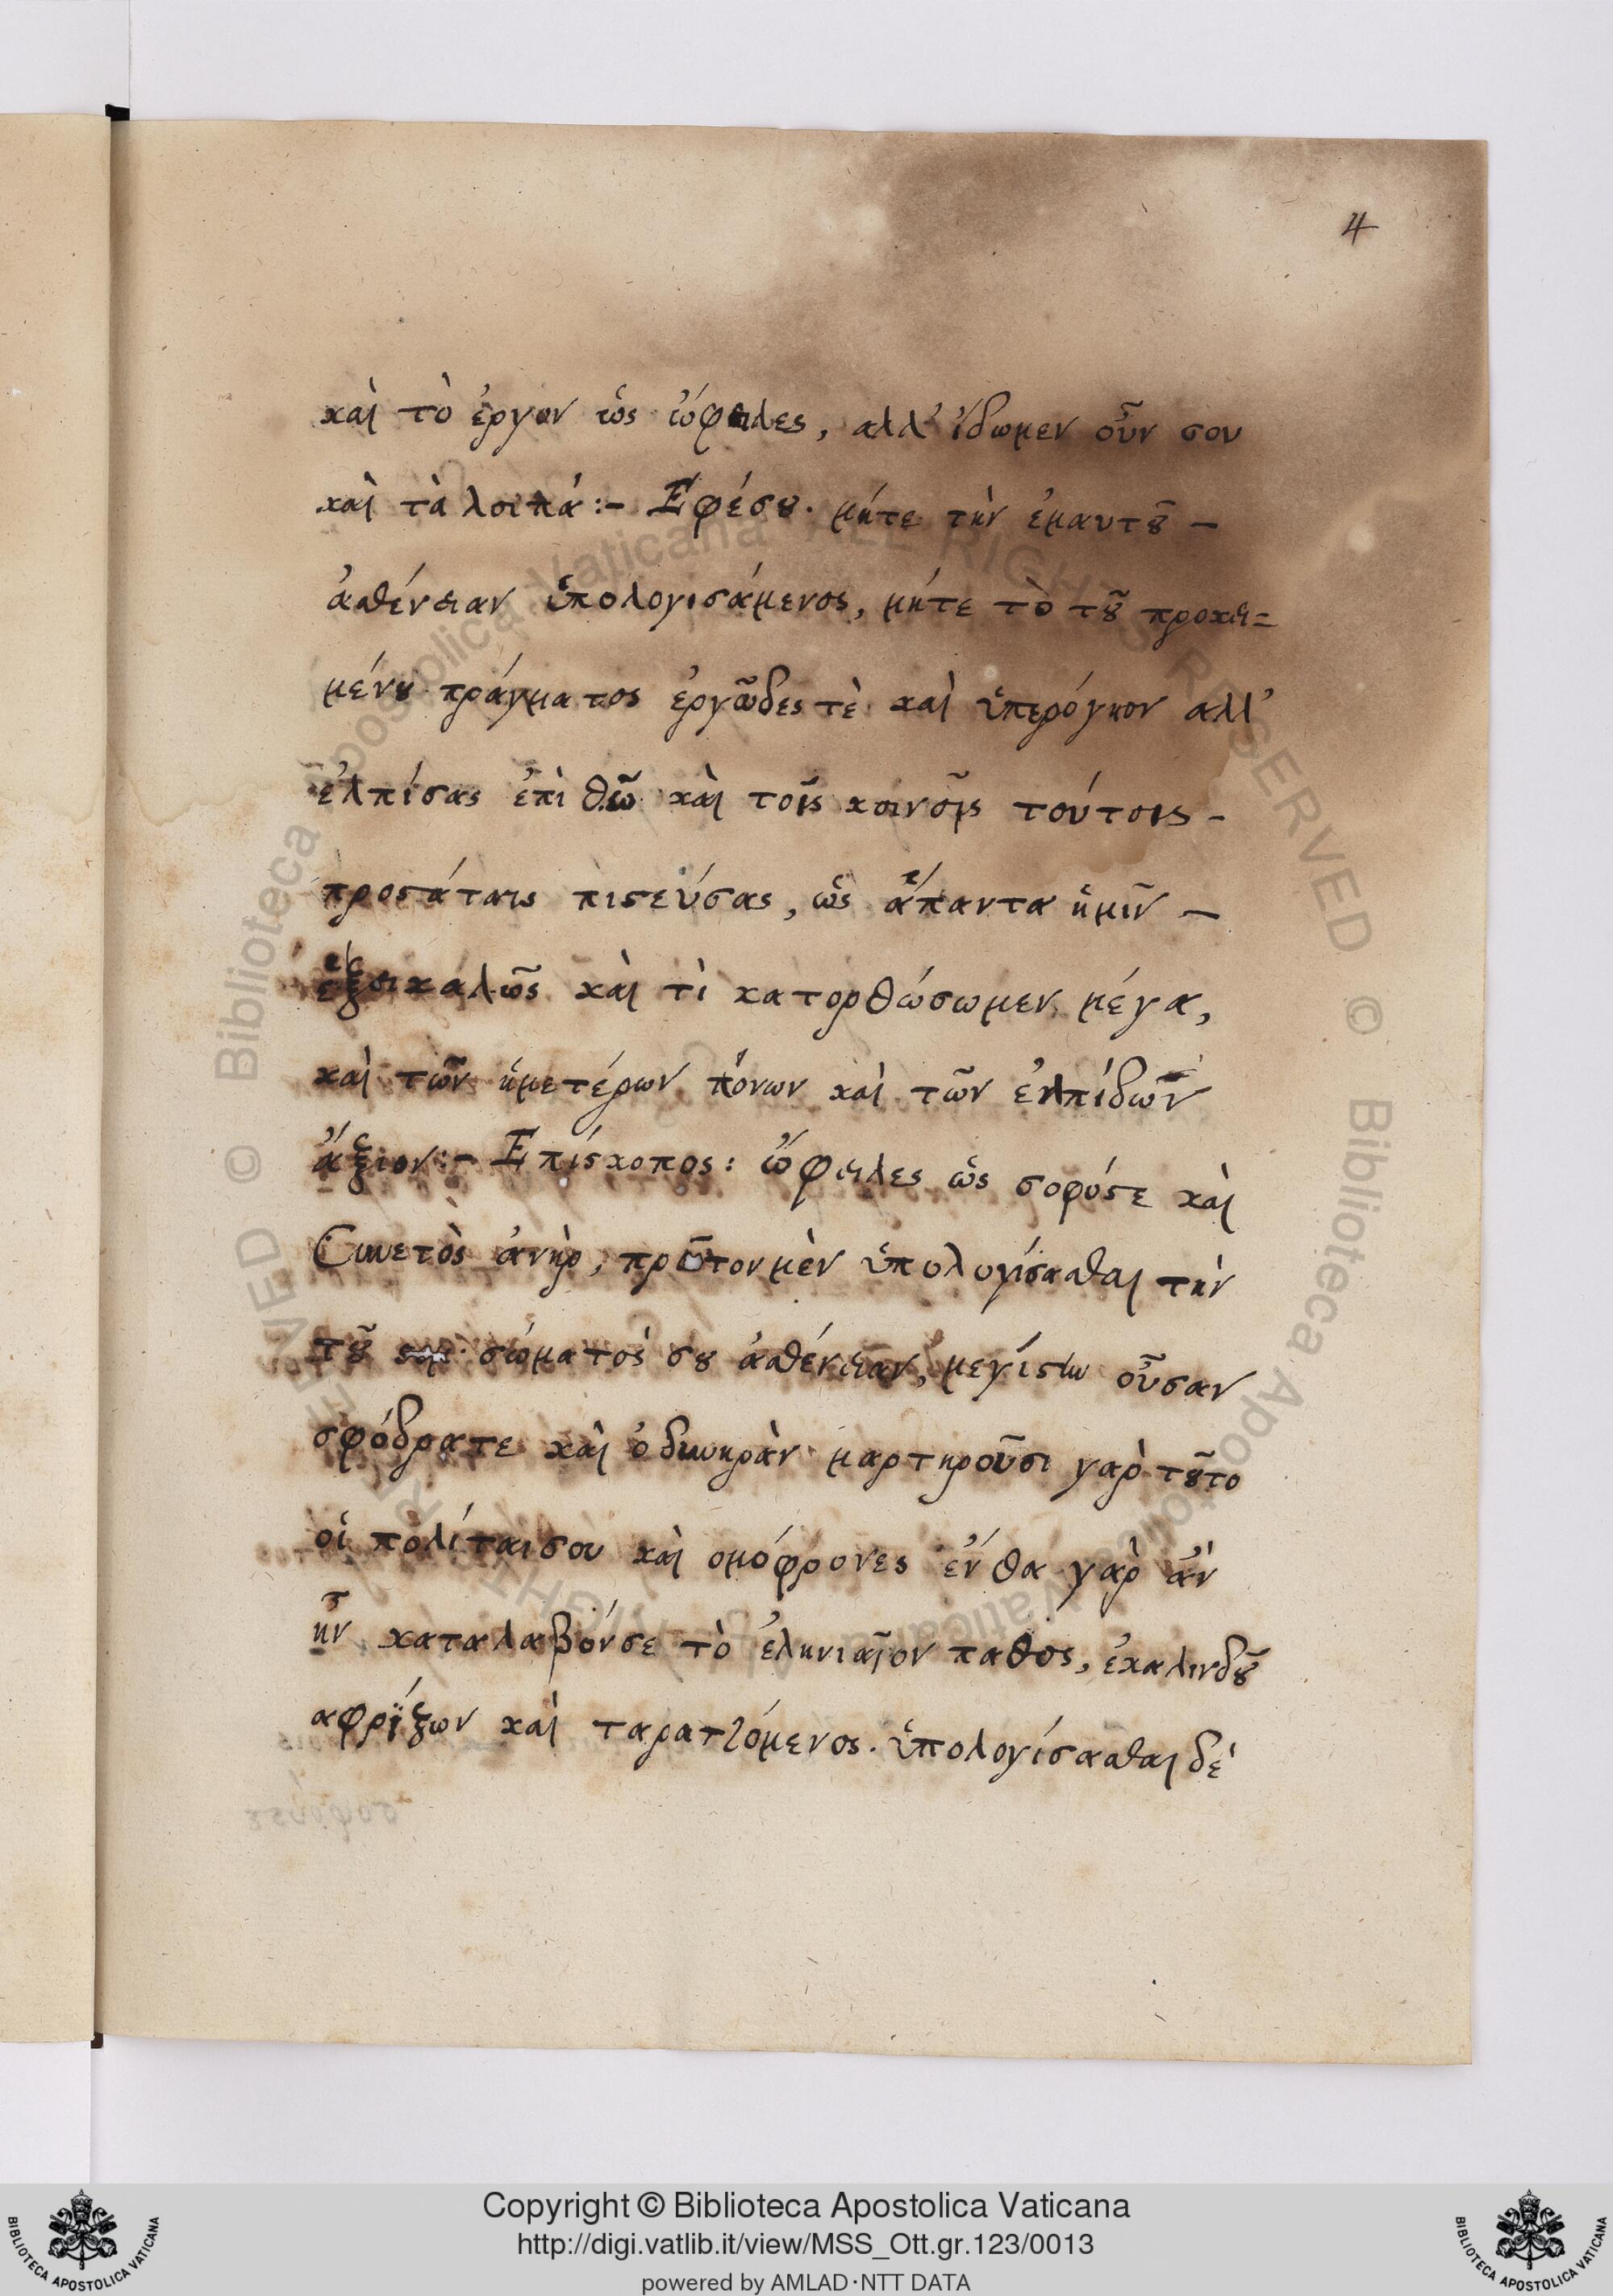 4
καὶ τὸ ἔργον ὡς ὤφειλες, αλλ' ἴδωμεν οὖν σου
καὶ τὰ λοιπά :- Εφέσου· μήτε τὴν ἐμαυτοῦ -
ἀσθένειαν ὑπολογισάμενος, μήτε τὸ τοῦ προκει=
μένου πράγματος ἐργῶδες τὲ καὶ ὑπερόγκον αλλ'
ἐλπίσας ἐπὶ θεῶ καὶ τοῖς κοινοῖς τούτοις -
προστάταις πιστεύσας, ὡς ἅπαντα ἡμῖν -
ἕξει καλῶς καὶ τὶ κατορθώσωμεν μέγα,
καὶ τῶν ἡμετέρων πόνων καὶ τῶν ἐλπίδων
ἄξιον :- Επίσκοπος : ὤφειλες ὡς σοφόστε καὶ
Συνετὸς ἀνὴρ, πρῶτον μὲν ὑπολογίσασθαι τὴν
τοῦ σώματός σου ἀσθένειαν, μεγίστην οὖσαν
σφόδρατε καὶ ὀδυνηρὰν· μαρτηροῦσι γαρ τοῦτο
οἱ πολίταισου καὶ ομόφρονες ἔνθα γαρ ἀν
ἦν καταλαβόνσε τὸ ἐληνιαῖον παθος, ἐκαλινδοῦ
αφρίξων καὶ ταραττόμενος. ὑπολογίσασθαι δέ
Copyright © Biblioteca Apostolica Vaticana
http://digi.vatlib.it/view/MSS_Ott.gr.123/0013
powered by AMLAD·NTT DATA
BIBLIOTECA APOSTOLICA VATICANA
BIBLIOTECA APOSTOLICA VATICANA